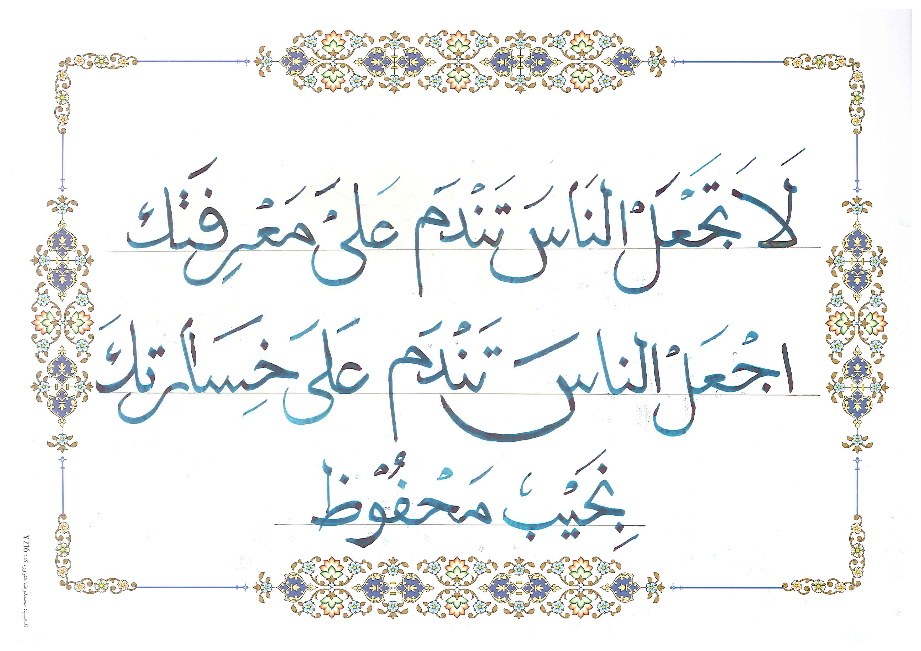 لَا تَجْعَلْ النَاسَ تَنْدَم عَلىَ مَعْرِفَتِك
اجْعَلْ الناس تَنْدَم عَلىَ خَسَارتك
نَجَيْب مَحْفُوْظ